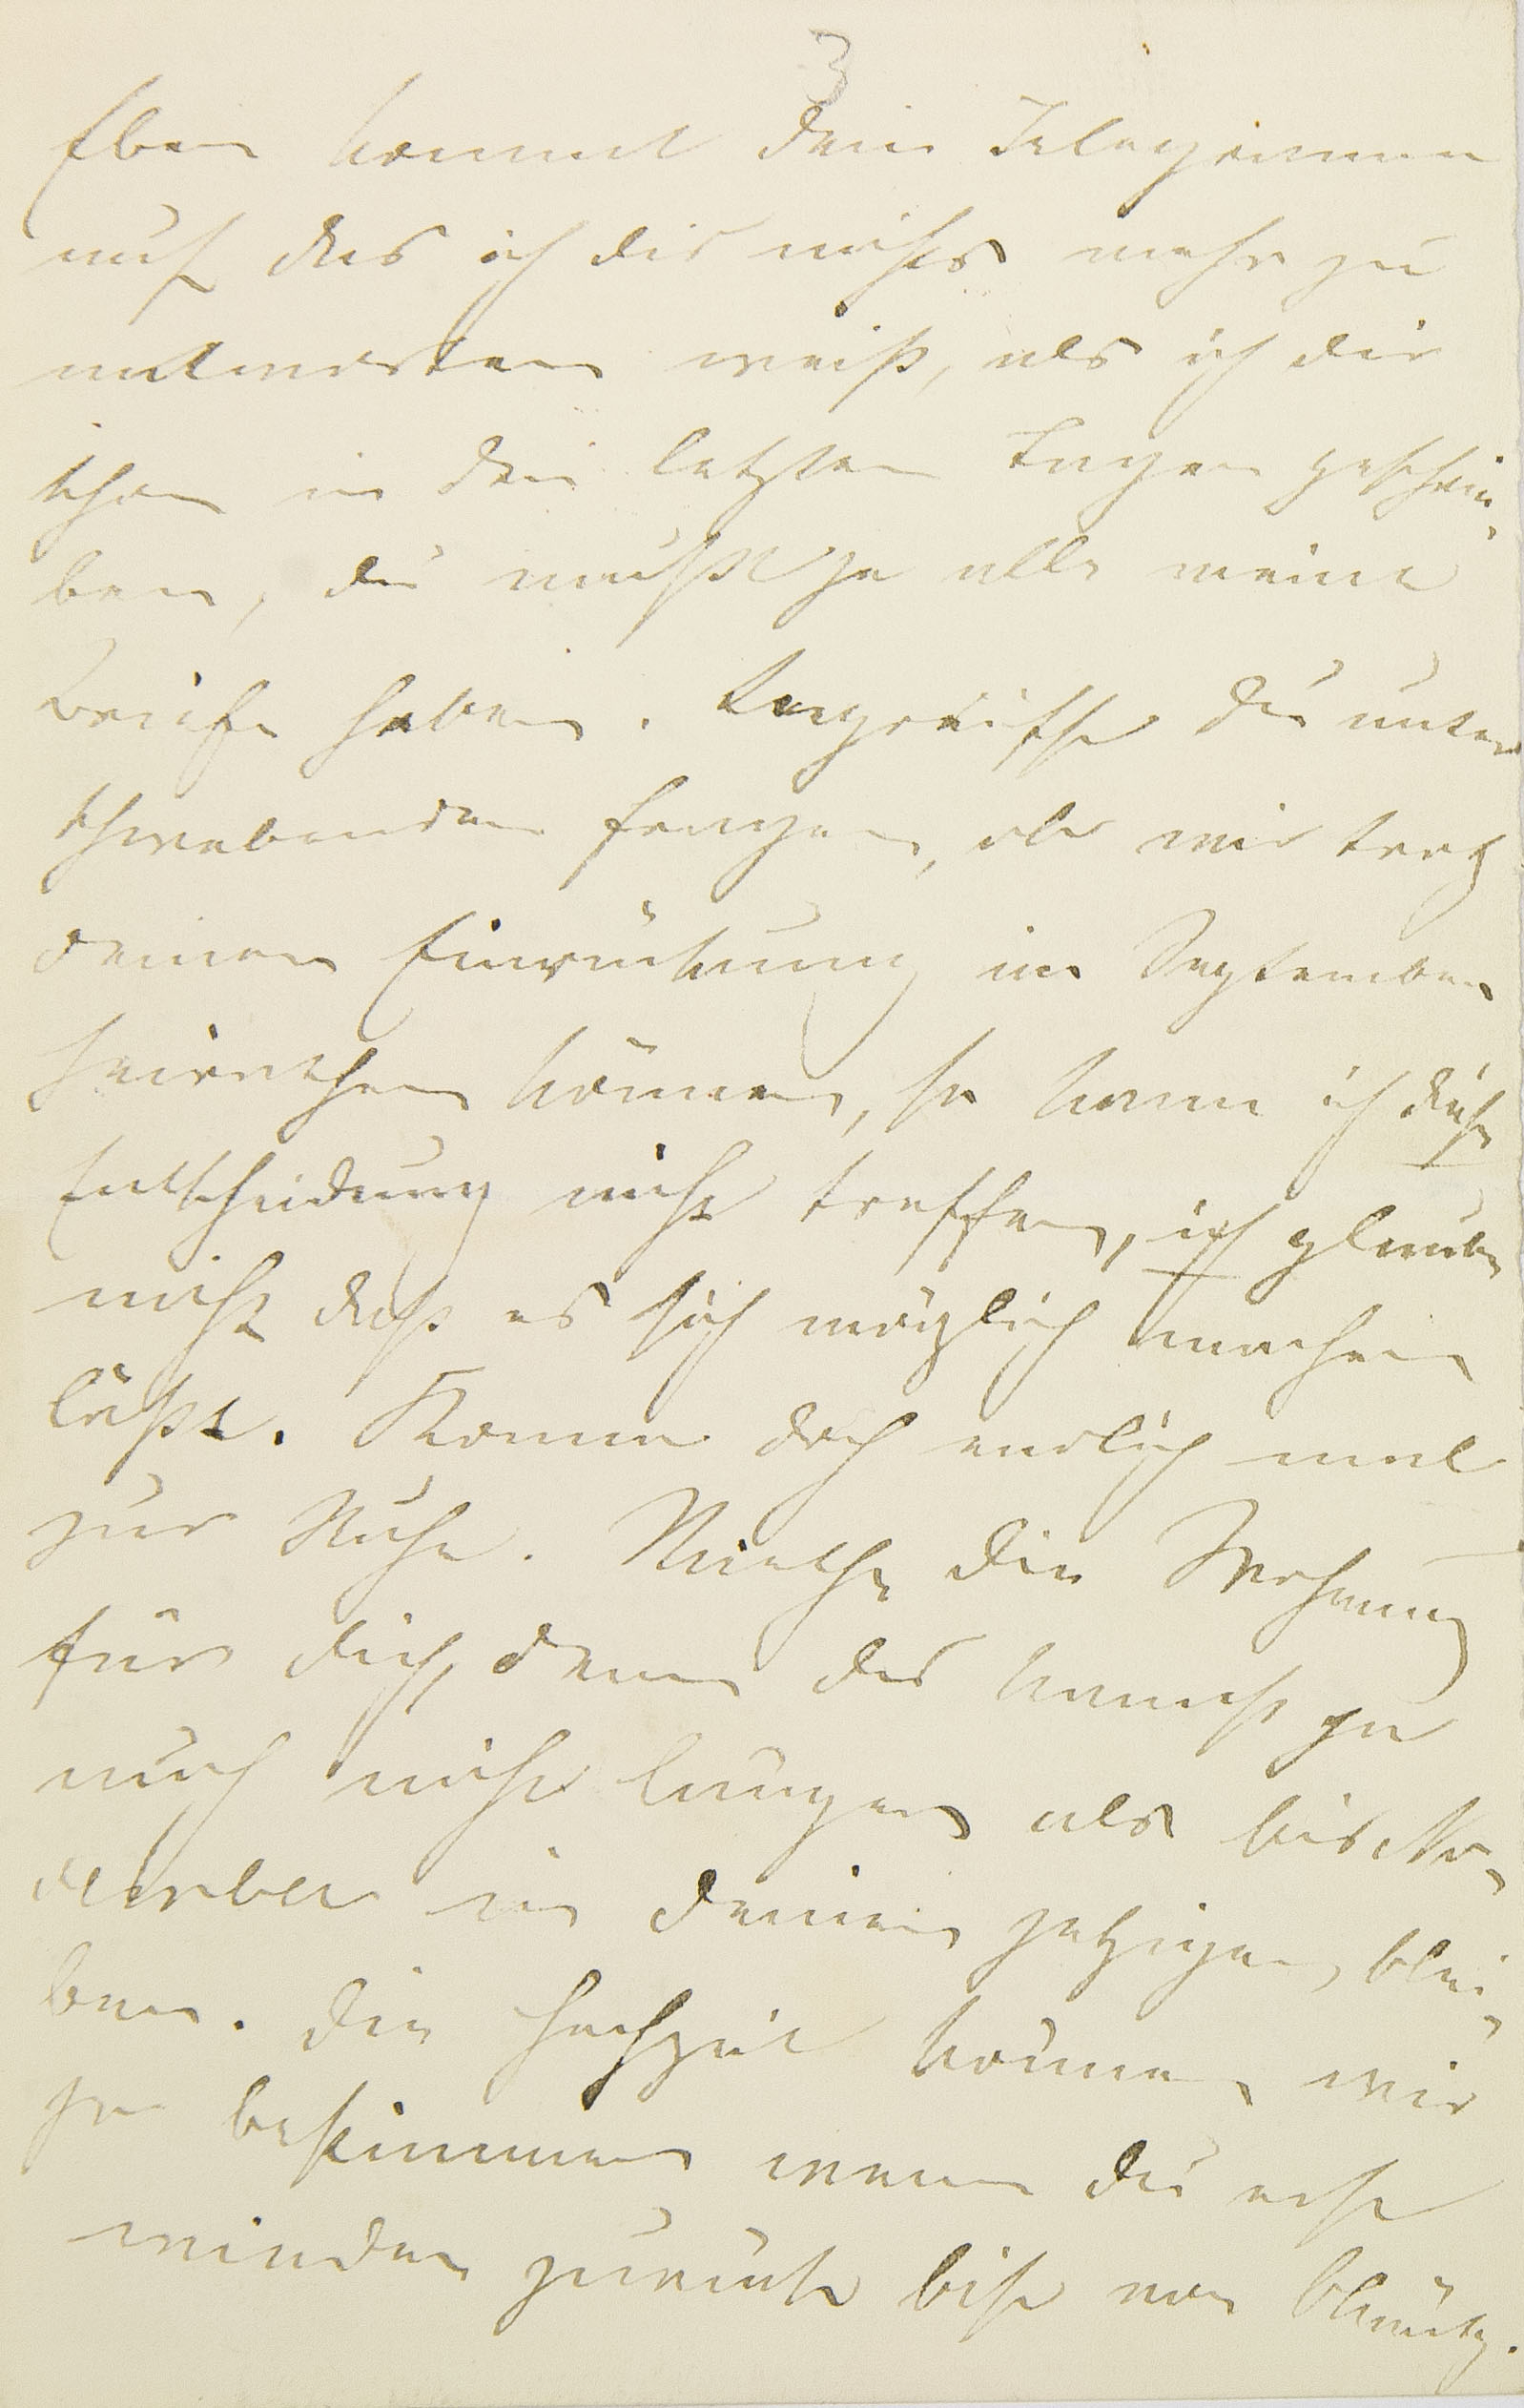 3
Eben kommt dein Telegramm
auf das ich dir nichts mehr zu
antworten weiß, als ich dir
schon in den letzten Tagen geschrie-
ben, du mußt ja alle meine
Briefe haben. Begreifst du unter
schwebenden Fragen, ob wir trotz
deiner Einrückung im September
heirathen können, so kann ich diese
Entscheidung nicht treffen, ich glaube
nicht daß es sich möglich machen
läßt. Komme doch endlich mal
zur Ruhe. Miethe die Wohnung
für dich, denn du kannst ja
auch nicht länger als bis
in deiner jetzigen, blei-
ben. Die Hochzeit können wir
ja bestimmen wenn du erst
wieder zurück bist von Olmütz.